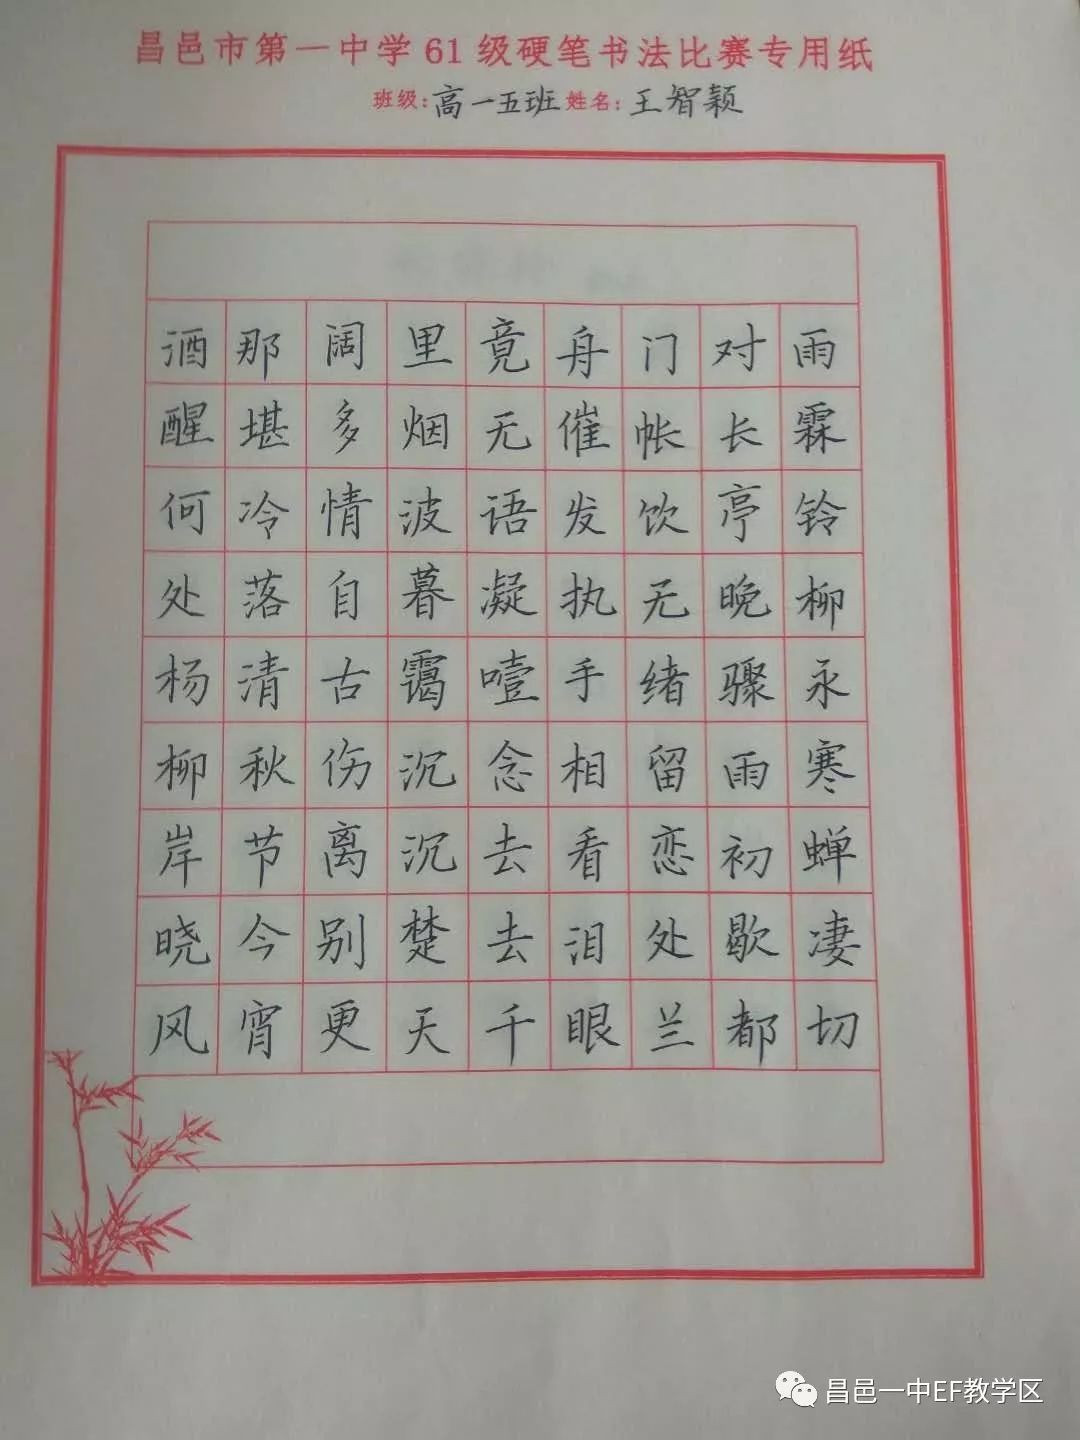 昌邑市第一中学61级硬笔书法比赛专用纸
班级:高一五班 姓名:王智颖
雨霖铃柳永寒蝉凄切
对长亭晚骤雨初歇都
门帐饮无绪留恋处兰
舟催发执手相看泪眼
竟无语凝噎念去去千
里烟波暮霭沉沉楚天
阔多情自古伤离别更
那堪冷落清秋节今宵
酒醒何处杨柳岸晓风
昌邑一中EF教学区